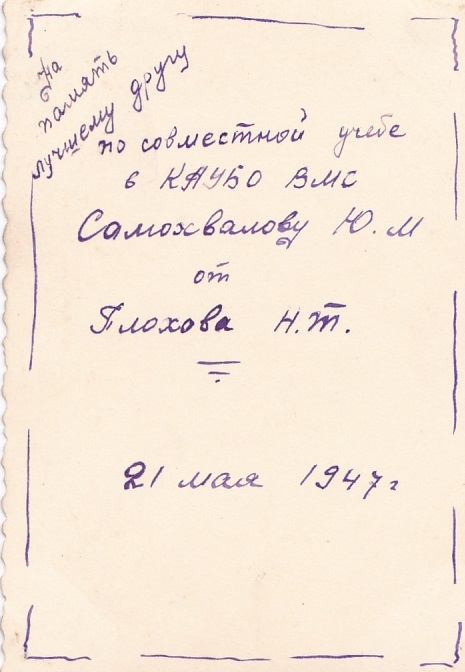 На
память
лучшему другу
по совместной учебе
в КАУБО ВМС
Самохвалову Ю.М
от
Плохова Н.Т.
21 мая 1947 г